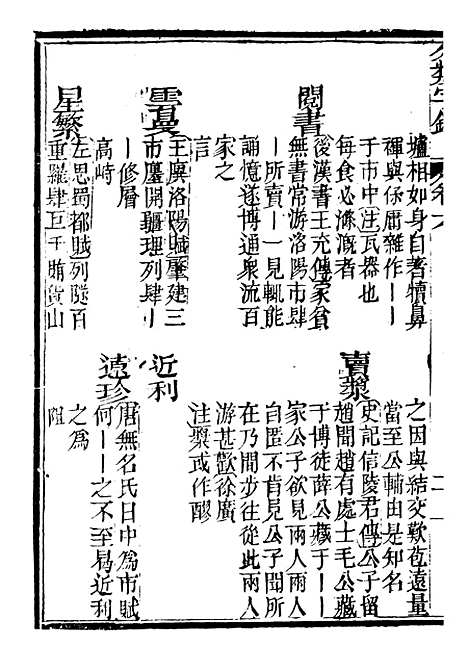 壚相如身自著犢鼻
褌與保庸雜作丨丨
于市中注瓦器也
每食必滌溉者
閱書
後漢書王充傳家貧
無書常游洛陽市肆
丨所賣丨一見輒能
誦憶遂博通衆流百
家之
言
雲蔓
王廙洛陽賦肇建三
市廛開疆理列肆丨
丨修層
高峙
星繁
左思蜀都賦列隧百
重羅肆巨千賄貨山
之因與結交歎苞遠量
當至公輔由是知名
賣漿
史記信陵君傳公子留
趙聞趙有處士毛公藏
于博徒薛公藏于丨丨
家公子欲見兩人兩人
自匿不肯見公子聞所
在乃間步往從此兩人
游甚歡徐廣
注漿或作醪
近利
遠珍
唐無名氏日中為市賦
何丨丨之不至曷近利
之為
阻